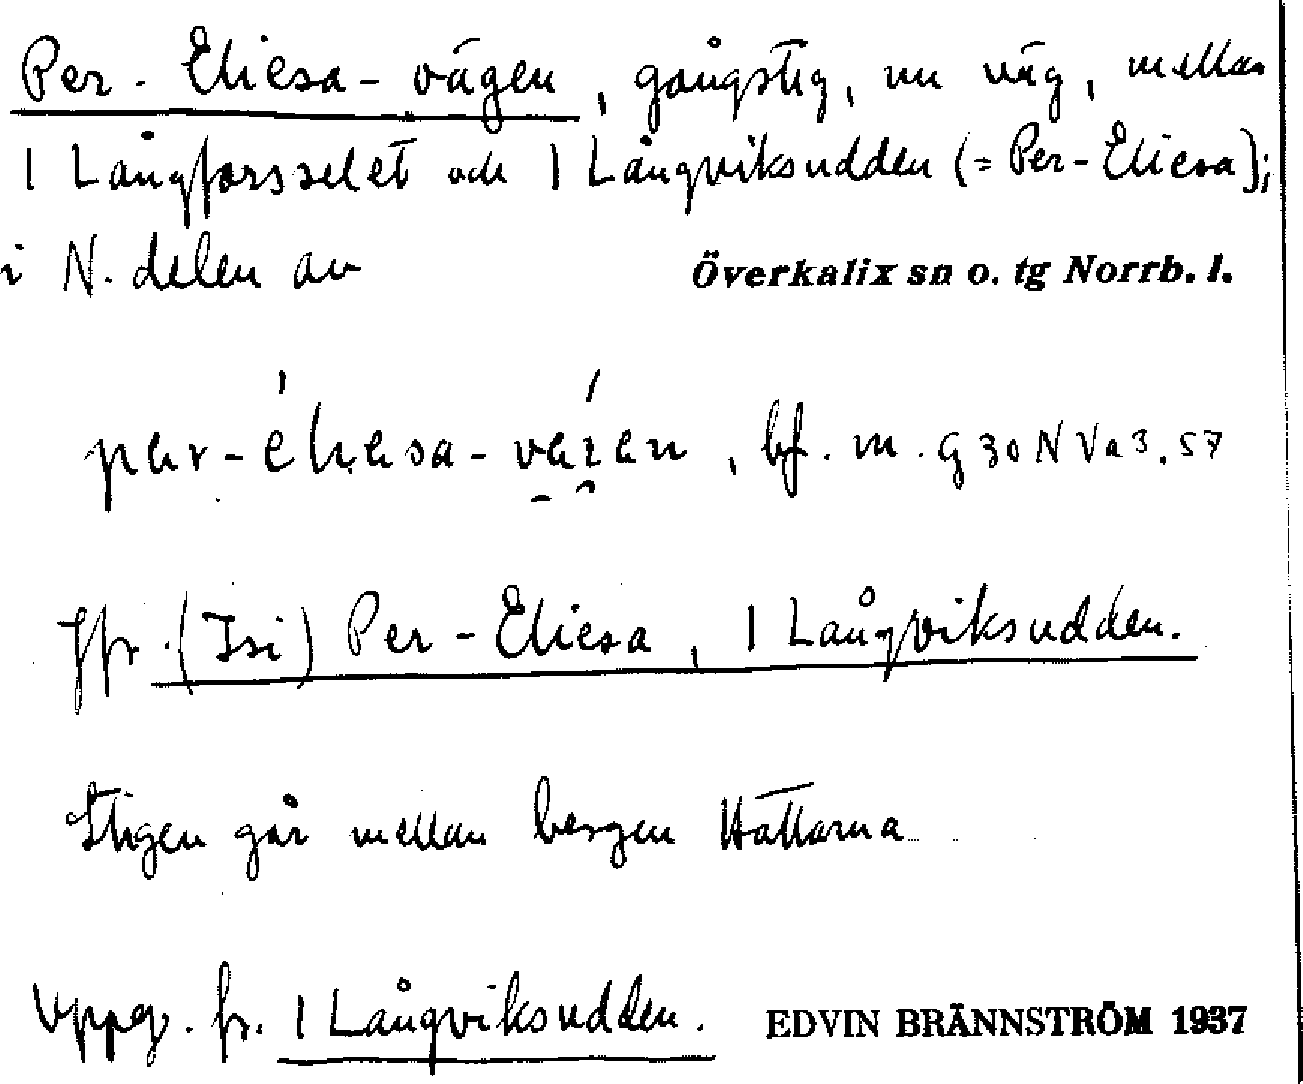 Per-Eliesa-vägen, gångstig, nu väg, mellan
1 Långforsselet och 1 Långviksudden (= Per-Eliesa);
i N. delen av Överkalix sn o. tg Norrb. l.
per-éliesa-vezen, bf. m. G 30 N Va 3. 57
Jfr (Isi) Per-Eliesa, 1 Långviksudden.
Stigen går mellan bergen Hattarna
Uppg. fr. 1 Långviksudden. EDVIN BRÄNNSTRÖM 1937